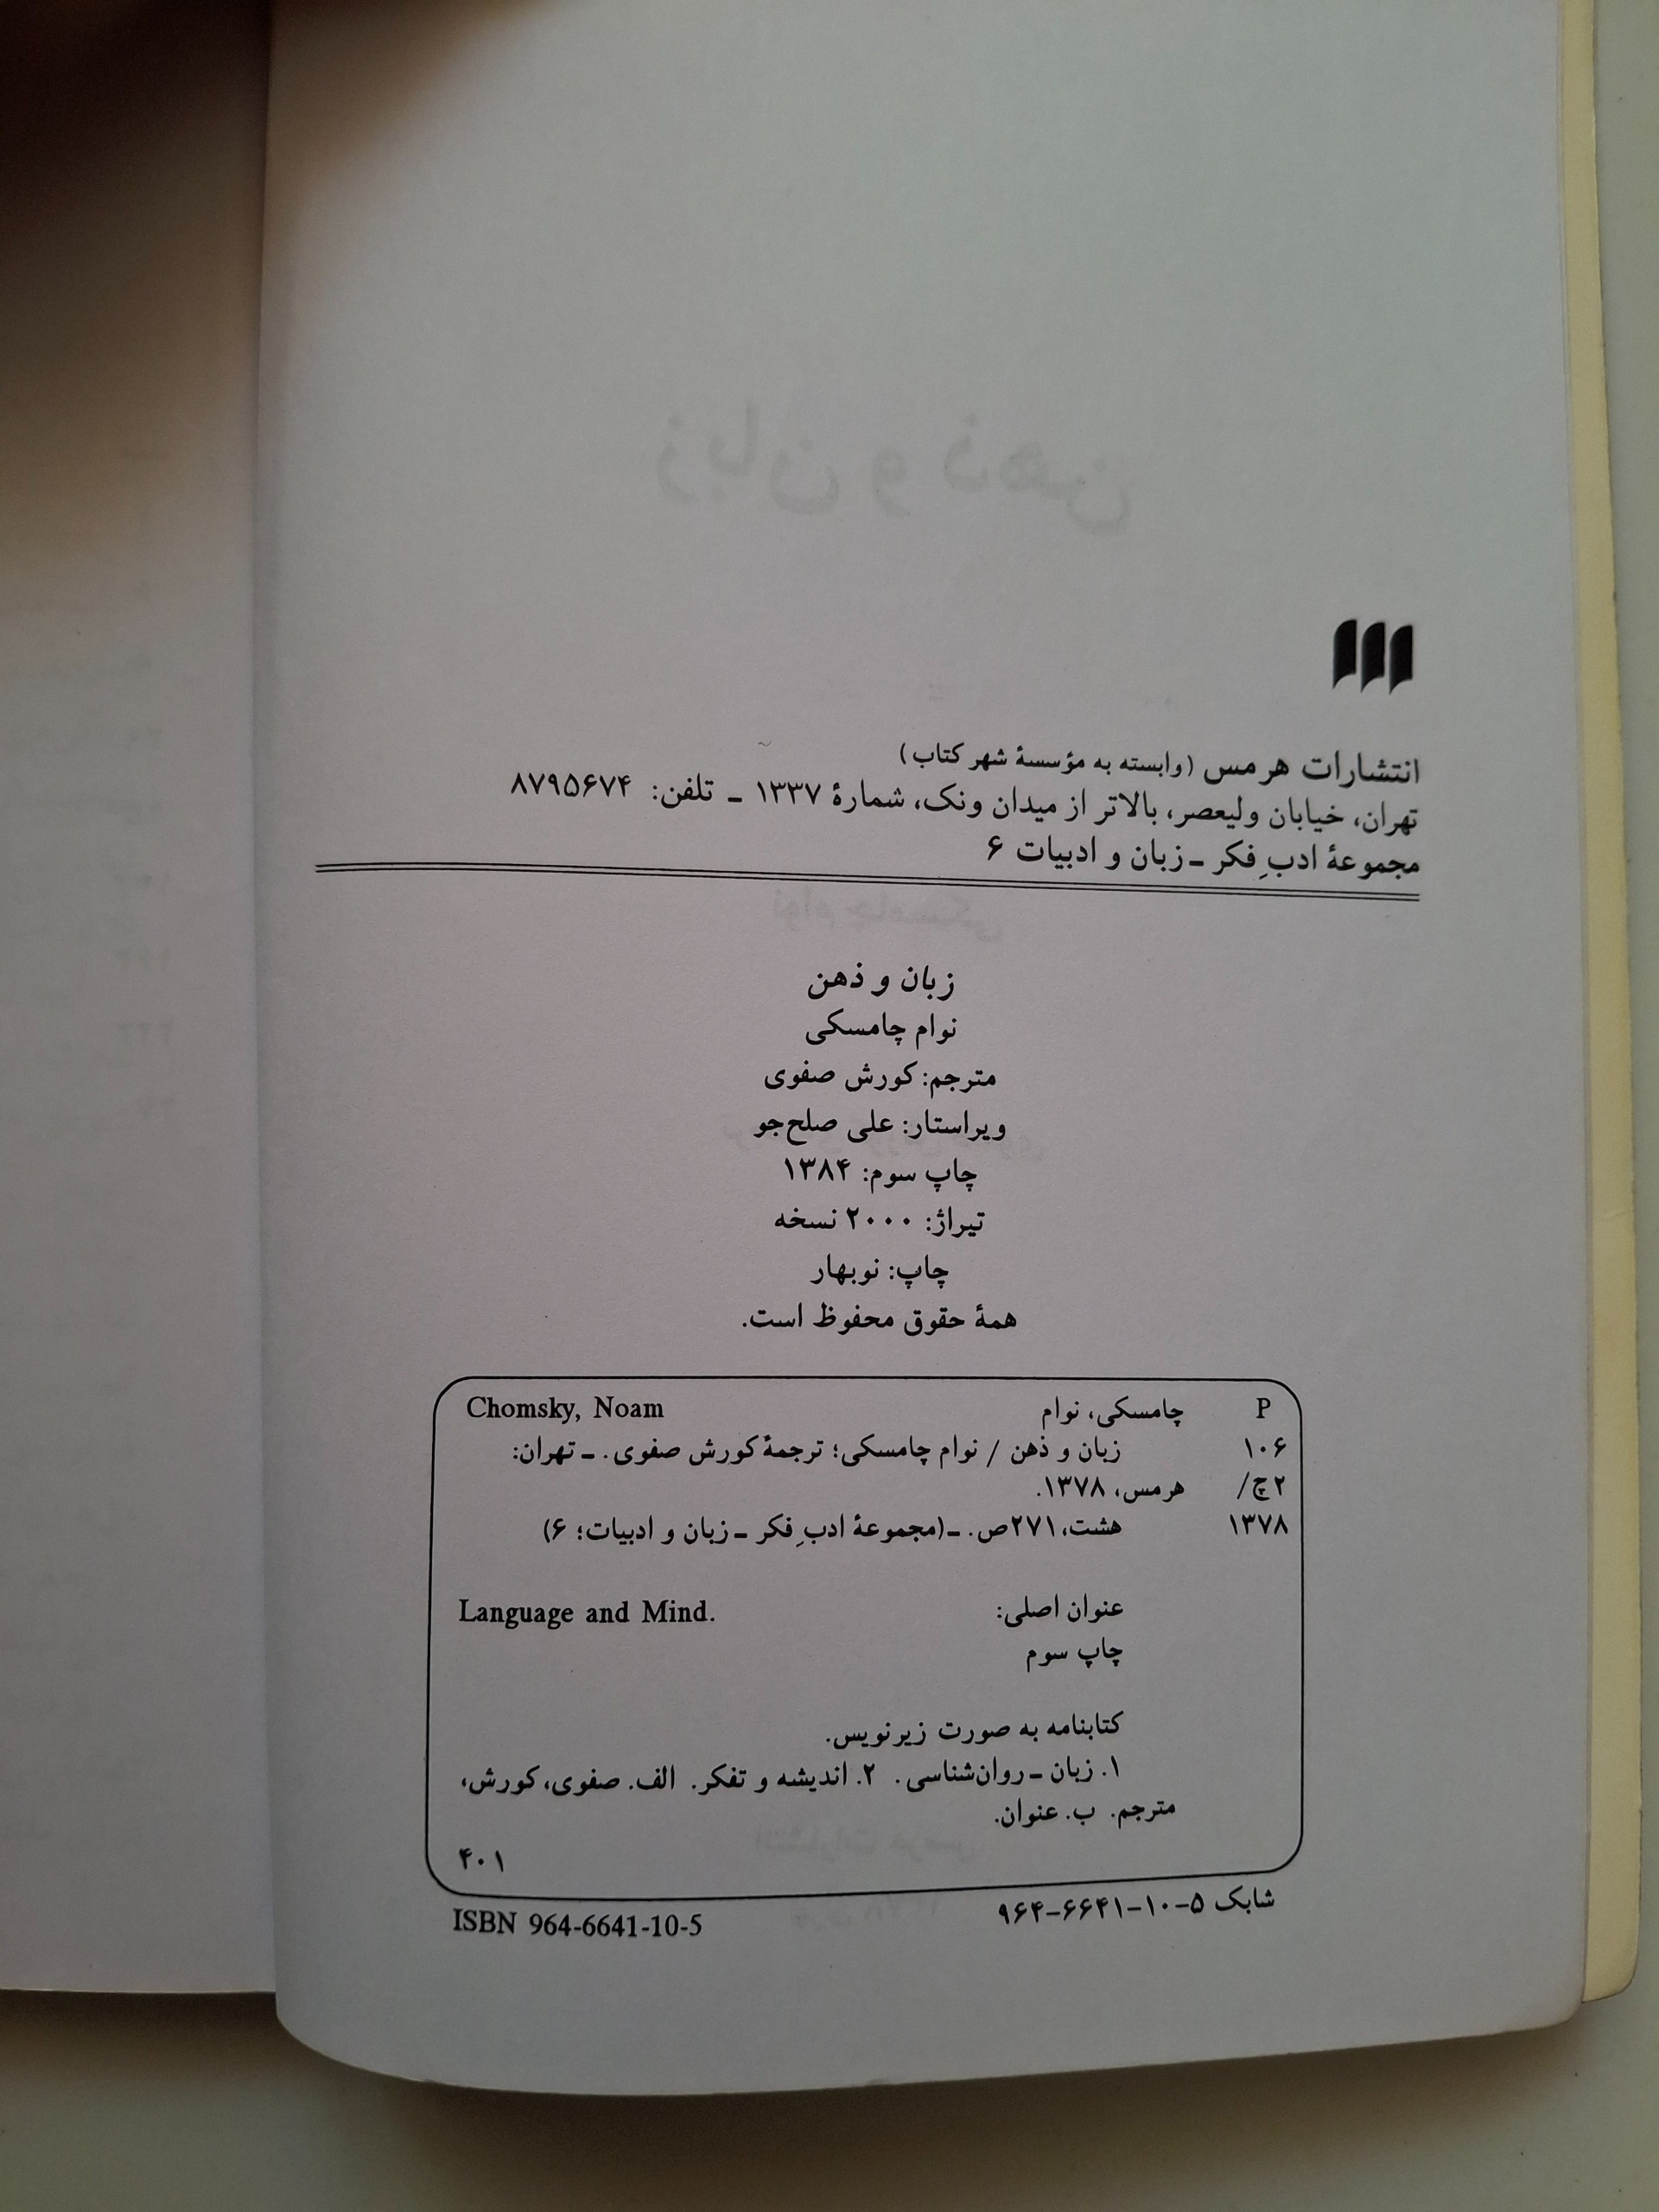 انتشارات هرمس (وابسته به مؤسسهٔ شهر کتاب)
تهران، خیابان ولیعصر، بالاتر از میدان ونک، شمارهٔ ۱۳۳۷ ـ تلفن: ۸۷۹۵۶۷۴
مجموعهٔ ادب ِفکر ـ زبان و ادبیات ۶
زبان و ذهن
نوام چامسکی
مترجم: کورش صفوی
ویراستار: علی صلح‌جو
چاپ سوم: ۱۳۸۴
تیراژ: ۲۰۰۰ نسخه
چاپ: نوبهار
همهٔ حقوق محفوظ است.
P چامسکی، نوام Chomsky, Noam
۱۰۶ زبان و ذهن / نوام چامسکی؛ ترجمهٔ کورش صفوی. ـ تهران:
۲چ/ هرمس، ۱۳۷۸.
۱۳۷۸ هشت، ۲۷۱ص. ـ(مجموعهٔ ادب ِفکر ـ زبان و ادبیات؛ ۶)
عنوان اصلی: Language and Mind.
چاپ سوم
کتابنامه به صورت زیرنویس.
۱. زبان ـ روان‌شناسی. ۲. اندیشه و تفکر. الف. صفوی، کورش،
مترجم. ب. عنوان.
۴۰۱
شابک ۵-۱۰-۶۶۴۱-۹۶۴ ISBN 964-6641-10-5